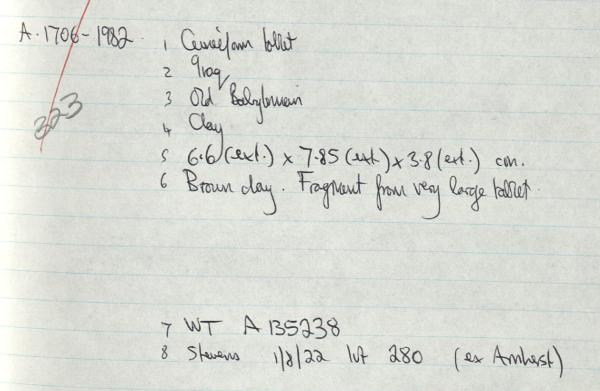 A.1706-1982. 1 Cuneiform tablet
2 Iraq
323
3 Old Babylonian
4 Clay
5 6.6 (ext.) x 7.85 (ext.) x 3.8 (ext.) cm.
6 Brown clay. Fragment from very large tablet.
7 WT A 135238
8 Stevens 1/8/22 lot 280 (ex Amherst)